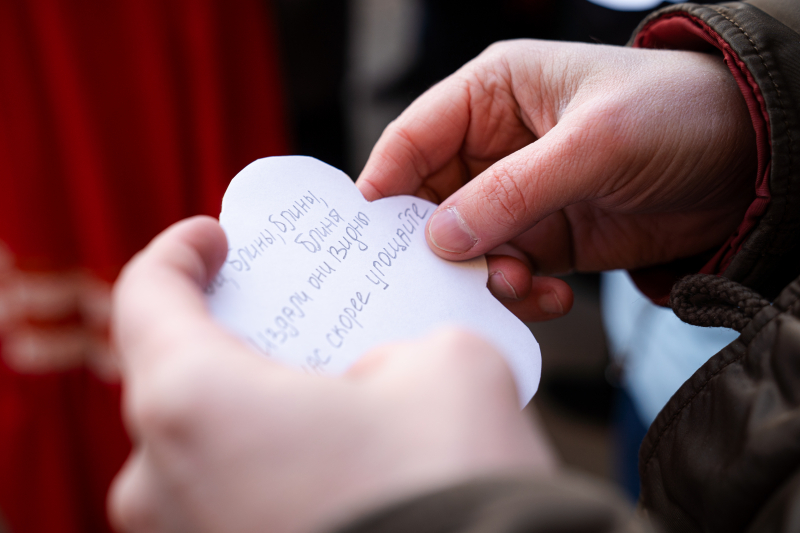 блины, блины, блины,
блиня
Издали они видно
нас скорее угощайте